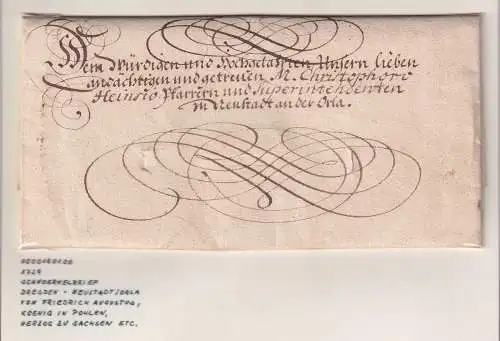 Dem Würdigen und Hochgelahrten, Unsern lieben
andächtigen und getreuen, M. Christophoro
Heinsio, Pfarrern und Superintendenten
zu Neustadt an der Orla.
1729
SCHNOERKELBRIEF
DRESDEN - NEUSTADT/ORLA
VON FRIEDRICH AUGUSTUS,
KOENIG IN POHLEN,
HERZOG ZU SACHSEN ETC.